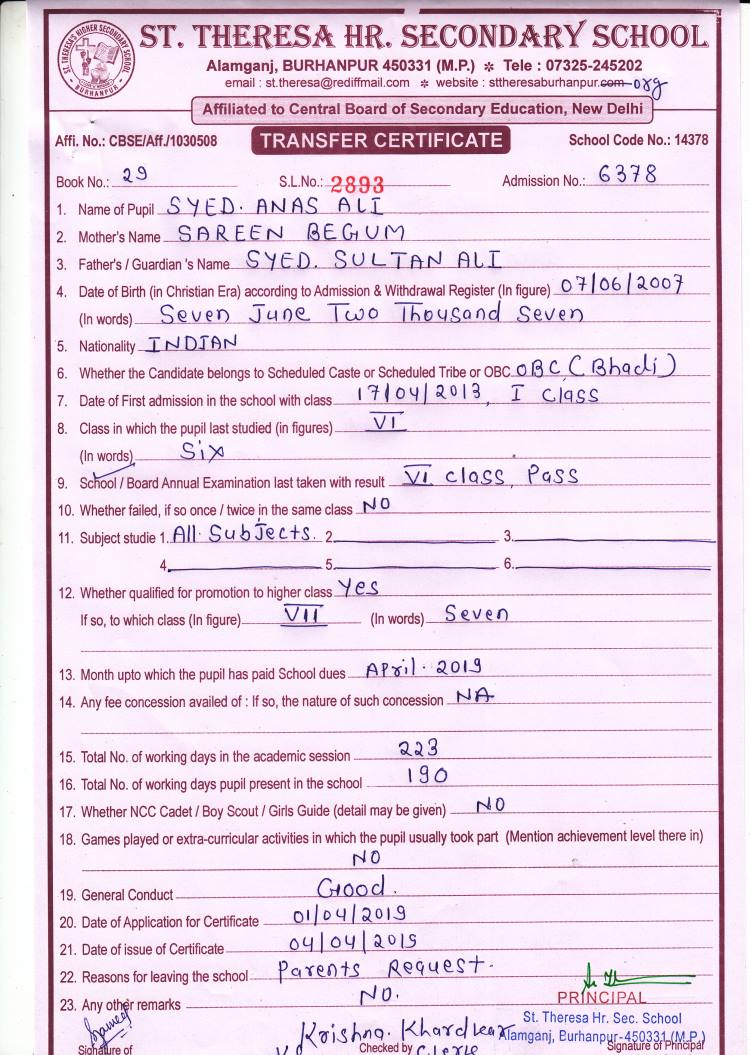 ST. THERESA'S HIGHER SECONDARY SCHOOL
BURHANPUR
ST. THERESA HR. SECONDARY SCHOOL
Alamganj, BURHANPUR 450331 (M.P.) * Tele : 07325-245202
email : st.theresa@rediffmail.com * website : sttheresaburhanpur.com org
Affiliated to Central Board of Secondary Education, New Delhi
Affi. No.: CBSE/Aff./1030508 TRANSFER CERTIFICATE School Code No.: 14378
Book No.: 29 S.L.No.: 2893 Admission No.: 6378
1. Name of Pupil SYED. ANAS ALI
2. Mother's Name SAREEN BEGUM
3. Father's / Guardian 's Name SYED. SULTAN ALI
4. Date of Birth (in Christian Era) according to Admission & Withdrawal Register (In figure) 07/06/2007
(In words) Seven June Two Thousand Seven
5. Nationality INDIAN
6. Whether the Candidate belongs to Scheduled Caste or Scheduled Tribe or OBC OBC (Bhadi)
7. Date of First admission in the school with class 17/04/2013, I class
8. Class in which the pupil last studied (in figures) VI
(In words) Six
9. School / Board Annual Examination last taken with result VI class, Pass
10. Whether failed, if so once / twice in the same class NO
11. Subject studie 1. All Subjects. 2. 3.
4. 5. 6.
12. Whether qualified for promotion to higher class Yes
If so, to which class (In figure) VII (In words) Seven
13. Month upto which the pupil has paid School dues April. 2019
14. Any fee concession availed of : If so, the nature of such concession NA
15. Total No. of working days in the academic session 223
16. Total No. of working days pupil present in the school 190
17. Whether NCC Cadet / Boy Scout / Girls Guide (detail may be given) NO
18. Games played or extra-curricular activities in which the pupil usually took part (Mention achievement level there in)
NO
19. General Conduct Good.
20. Date of Application for Certificate 01/04/2019
21. Date of issue of Certificate 04/04/2019
22. Reasons for leaving the school Parents Request.
23. Any other remarks NO.
PRINCIPAL
St. Theresa Hr. Sec. School
Alamganj, Burhanpur-450331 (M.P.)
Krishna. Khardkear
Signature of Checked by Clerk Signature of Principal